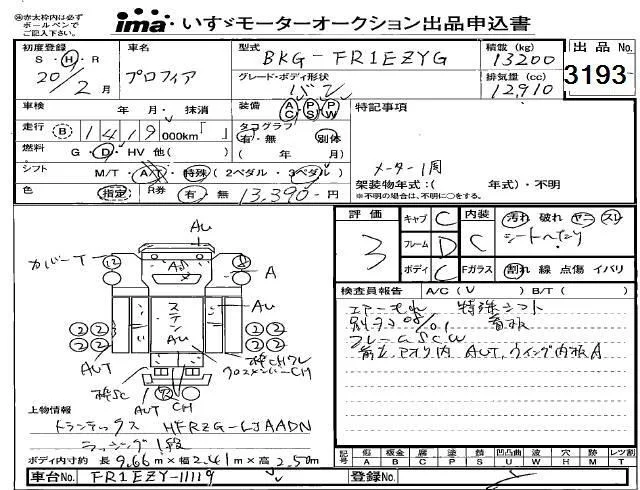 ㊟赤太枠内は必ず
ボールペンで
ご記入下さい。
ima いすゞモーターオークション出品申込書
初度登録 車名 型式 BKG-FR1EZYG 積載 (kg) 13200 出品 No.
S・H・R 20/2月 プロフィア グレード・ボディ形状 バン 排気量 (cc) 12,910 3193
車検 年 月・ 抹消 装備 AC PS PW 特記事項
走行 B 1419 000km「 」 タコグラフ 有・無 別体
燃料 G・D・HV 他( ) ( 年 月)
メーター1周
シフト M/T・A/T・特殊 (2ペダル・3ペダル) 架装物年式:( 年式)・不明
色 指定 R券 有 無 13,390円 ※不明の場合は、不明に○をする。
評価 3 キャブ C 内装 C 汚れ 破れ ヤニ スレ
フレーム D シートへたり
ボディ C Fガラス 割れ 線 点傷 イバリ
検査員報告 A/C(V ) B/T( )
エアーもれ 特殊シフト
フレームSCW
AUT, ウイング内板A
カバーT AW A
ステンAW
AW
AUT
枠SC AUT CH
枠CHクレ
クロスメンバーCH
上物情報
トランテックス HFRZG-LJAADN
ラッシング1段
ボディ内寸約 長 9.66m×幅 2.41m×高 2.50m
記号 A B C P S U W H M T
車台No. FR1EZY-11119 登録No.